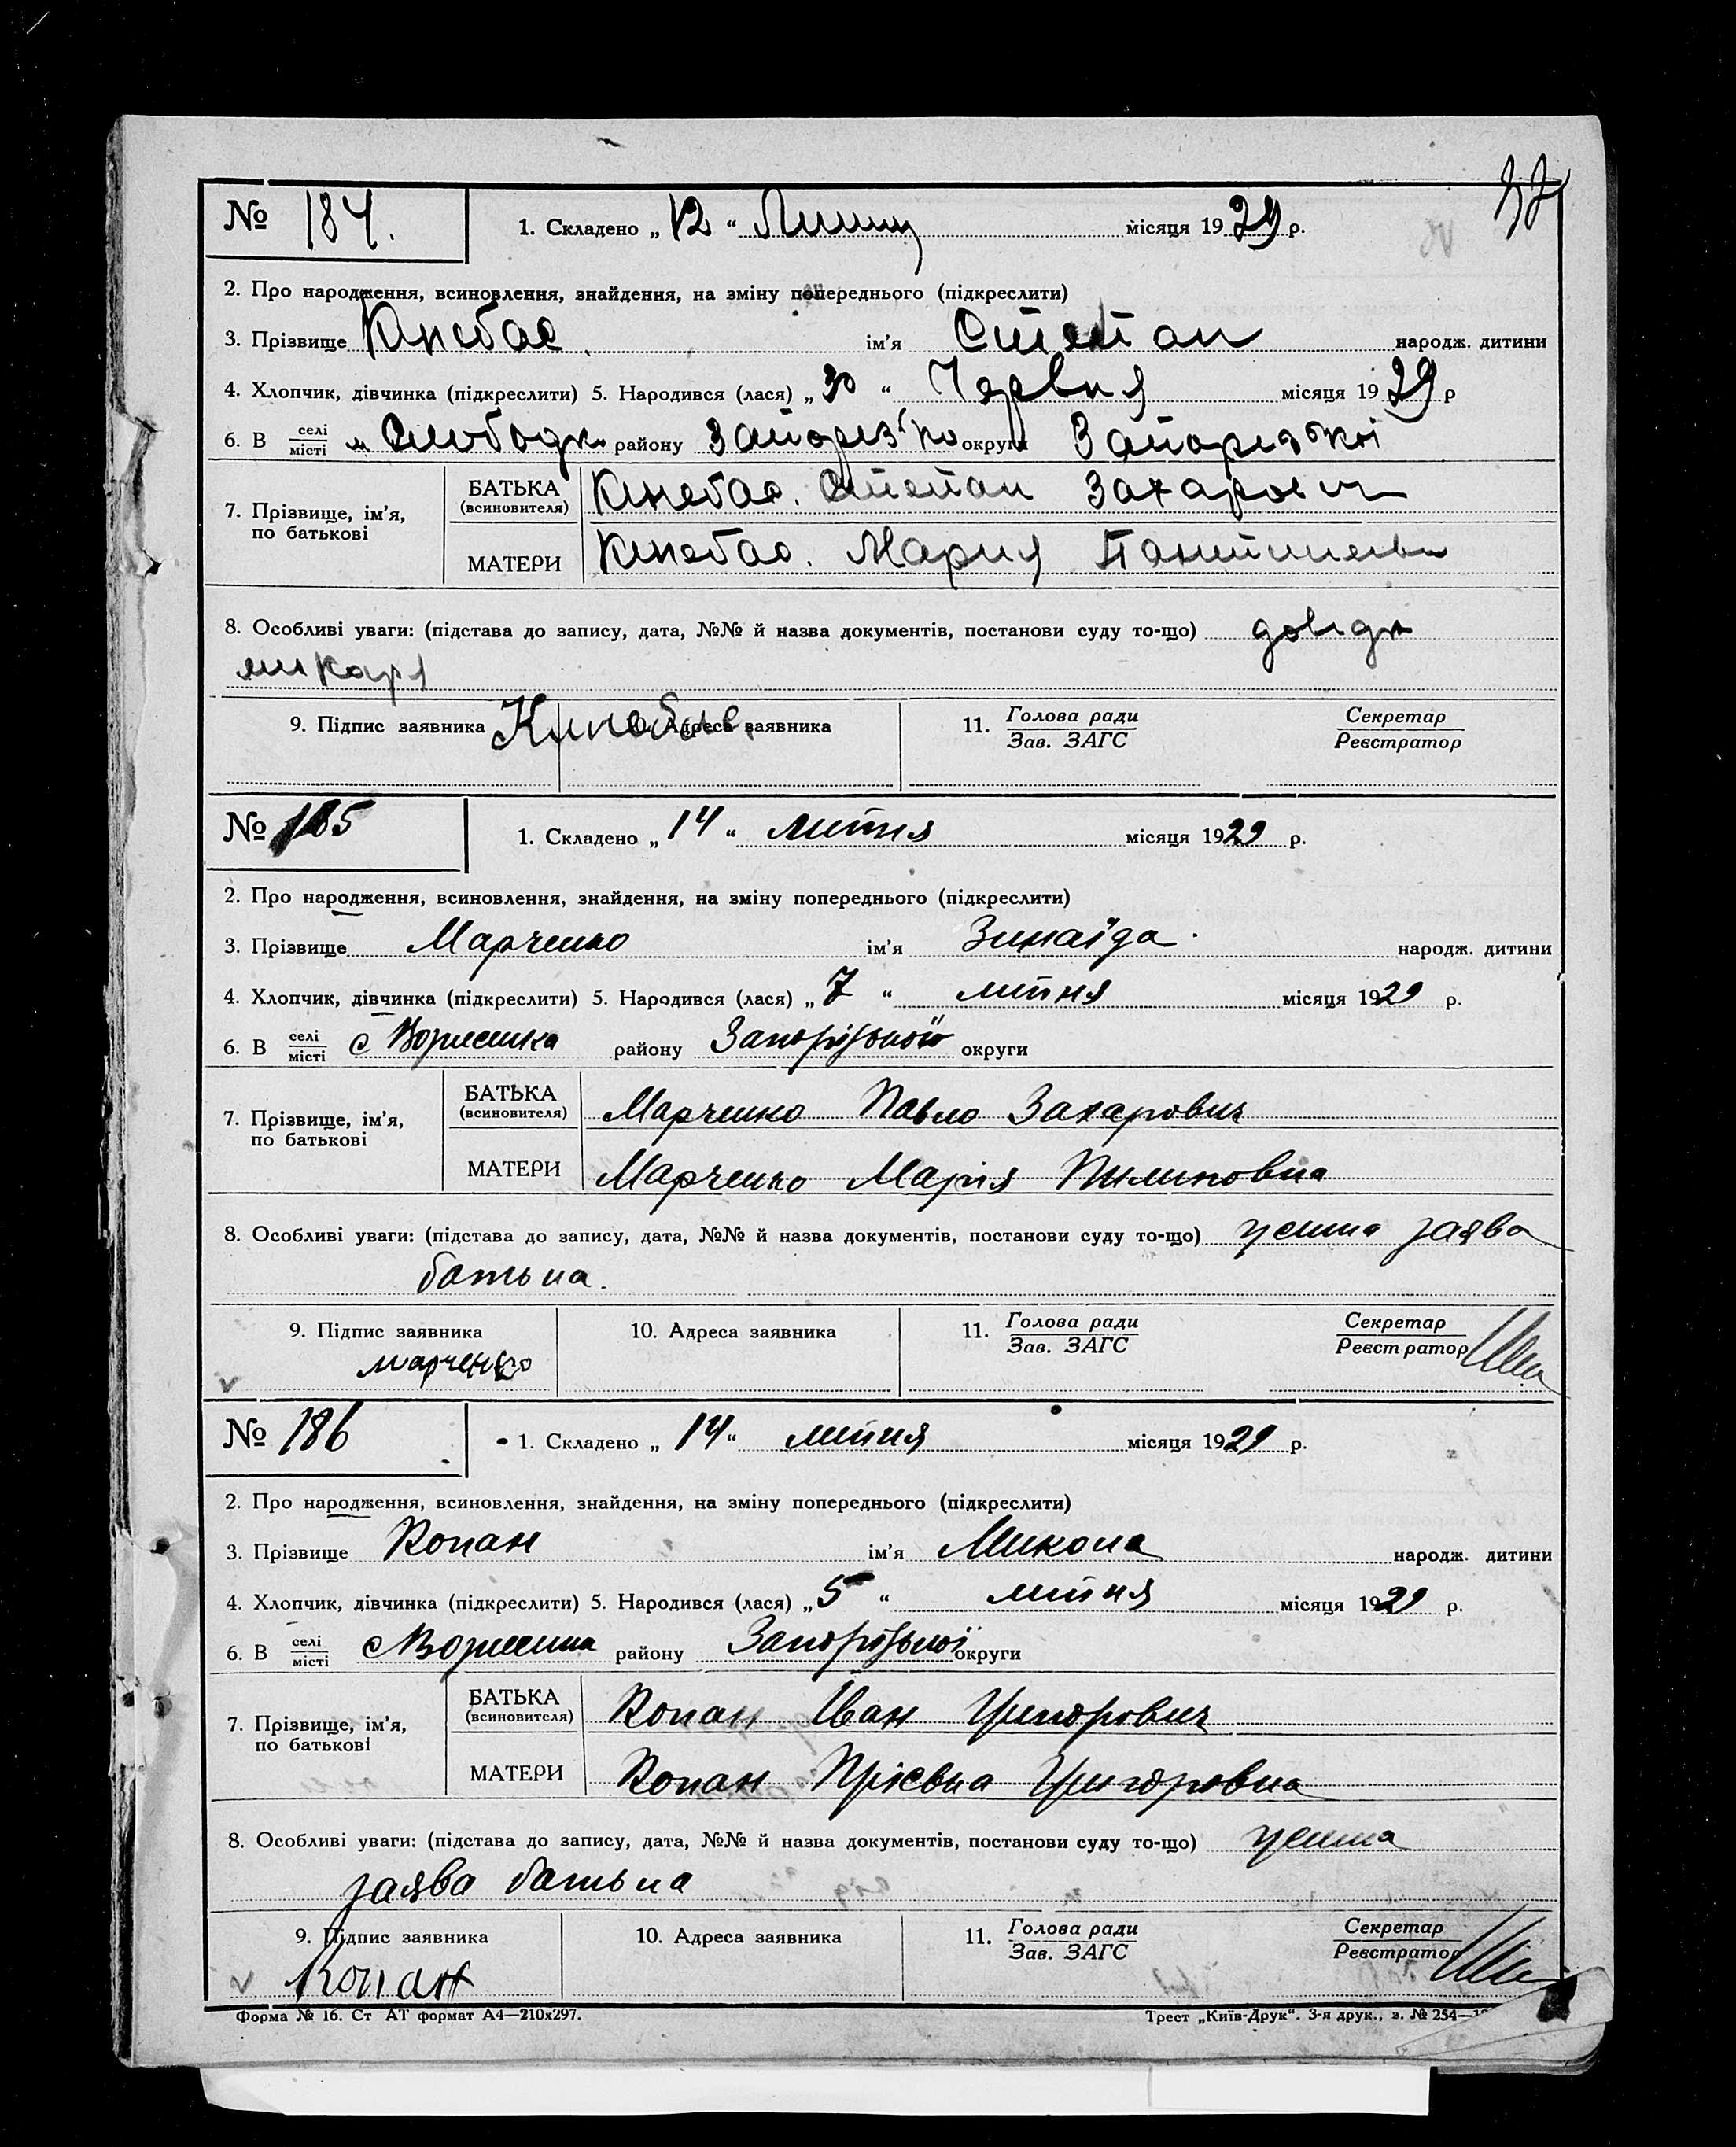 37
№ 184. 1. Складено „ 12 “ Липня місяця 1929 р.
2. Про народження, всиновлення, знайдення, на зміну попереднього (підкреслити)
3. Прізвище ім’я Степан народж. дитини
4. Хлопчик, дівчинка (підкреслити) 5. Народився (лася) „ 30 “ Червня місяця 1929 р
6. В селі/місті Слободка району округи Запорізької
7. Прізвище, ім’я, по батькові БАТЬКА (всиновителя) Степан Захарович
МАТЕРИ Мария
8. Особливі уваги: (підстава до запису, дата, №№ й назва документів, постанови суду то-що) довідк
ликаря
9. Підпис заявника 10. Адреса заявника 11. Голова ради/Зав. ЗАГС Секретар/Реєстратор
№ 185 1. Складено „ 14 “ липня місяця 1929 р.
2. Про народження, всиновлення, знайдення, на зміну попереднього (підкреслити)
3. Прізвище Марченко ім’я Зинаїда народж. дитини
4. Хлопчик, дівчинка (підкреслити) 5. Народився (лася) „ 7 “ липня місяця 1929 р.
6. В селі/місті с району Запорізької округи
7. Прізвище, ім’я, по батькові БАТЬКА (всиновителя) Марченко Павло Захарович
МАТЕРИ Марченко Марія Пилиповна
8. Особливі уваги: (підстава до запису, дата, №№ й назва документів, постанови суду то-що) усина заява
батька.
9. Підпис заявника 10. Адреса заявника 11. Голова ради/Зав. ЗАГС Секретар/Реєстратор
марченко
№ 186 1. Складено „ 14 “ липня місяця 1929 р.
2. Про народження, всиновлення, знайдення, на зміну попереднього (підкреслити)
3. Прізвище Копан ім’я Микола народж. дитини
4. Хлопчик, дівчинка (підкреслити) 5. Народився (лася) „ 5 “ липня місяця 1929 р.
6. В селі/місті с району Запорізької округи
7. Прізвище, ім’я, по батькові БАТЬКА (всиновителя) Копан Іван Григорович
МАТЕРИ Копан Григоровна
8. Особливі уваги: (підстава до запису, дата, №№ й назва документів, постанови суду то-що) усина
заява батька
9. Підпис заявника 10. Адреса заявника 11. Голова ради/Зав. ЗАГС Секретар/Реєстратор
Копан
Форма № 16. Ст АТ формат А4—210х297. Трест „Київ-Друк“. 3-я друк., з. № 254—